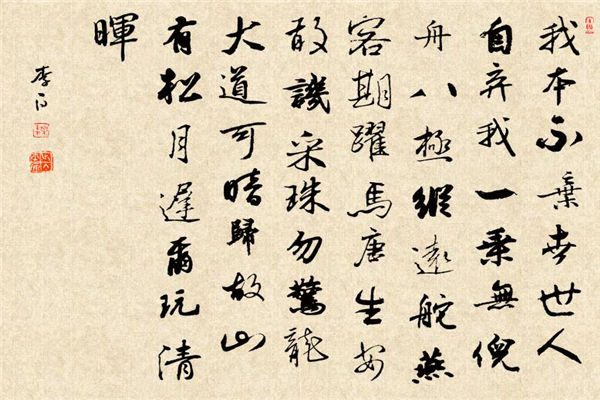 我本不棄世世人
自弃我一乘無倪
舟八極縱遠舵燕
客期躍馬唐生安
敢譏采珠勿驚龍
大道可暗歸故山
有松月遲爾玩清
暉
李白